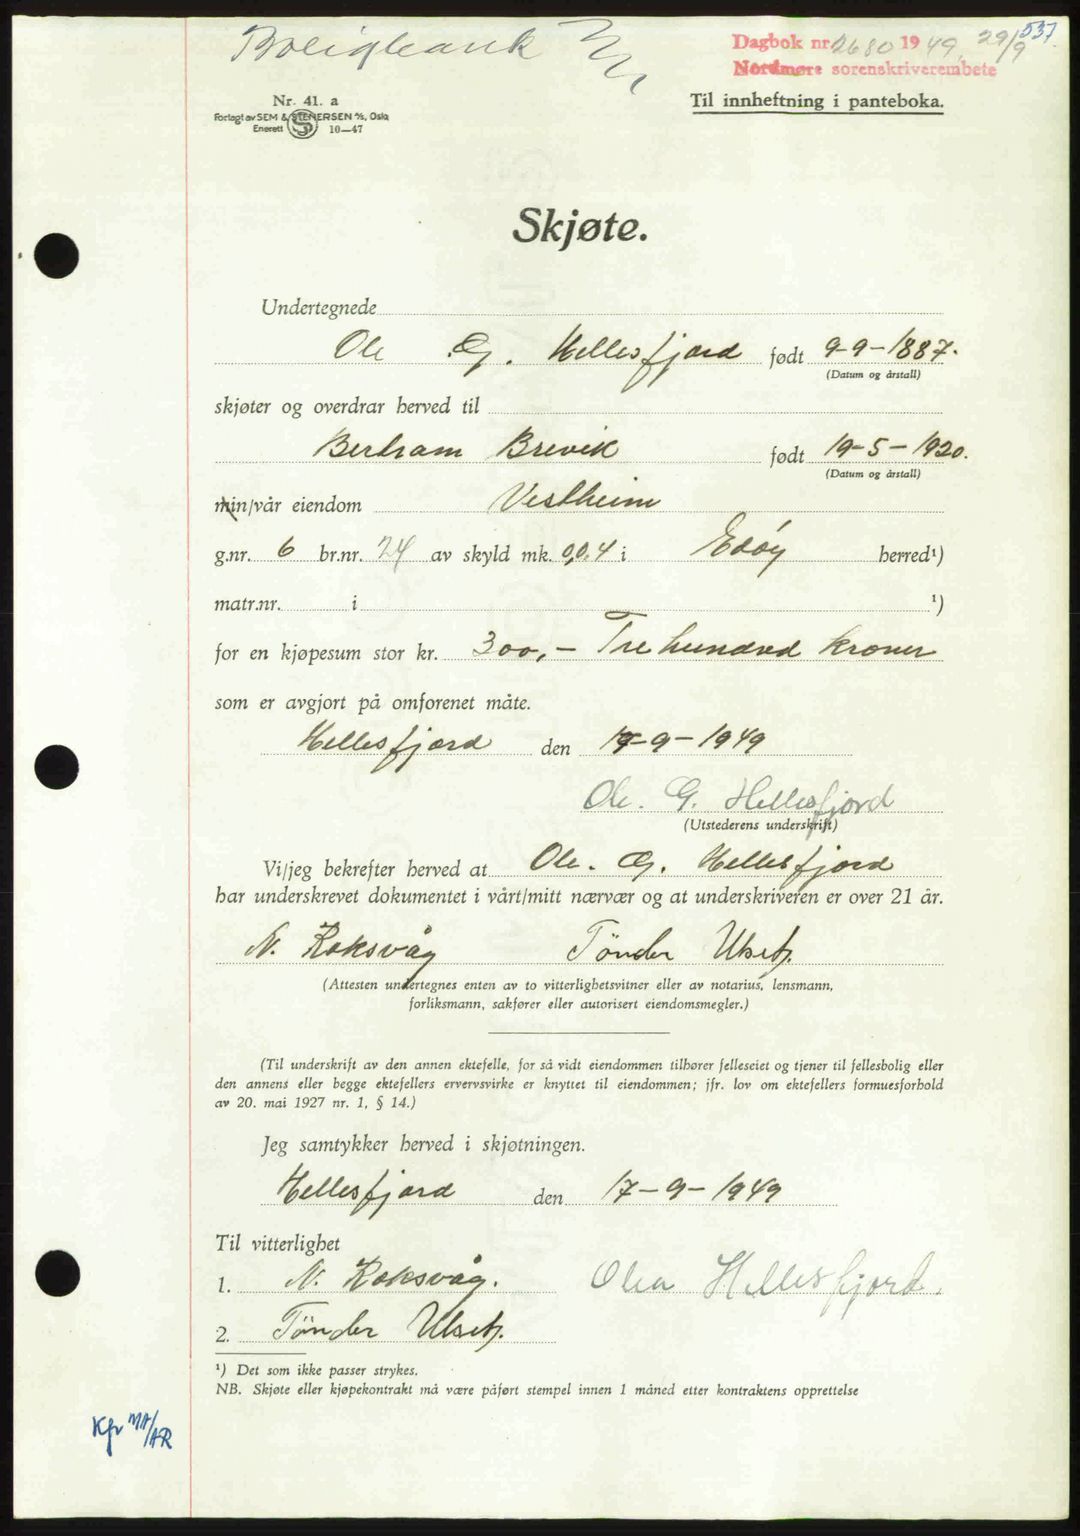 Boligbank
537
Dagbok nr. 2680 1949 29/9
Nordmøre sorenskriverembete
Til innheftning i panteboka.
Nr. 41. a
Forlagt av SEM & STENERSEN A/S, Oslo
Enerett S 10—47
Skjøte.
Undertegnede
Ole G. Hellesfjord født 9-9-1887.
(Datum og årstall)
skjøter og overdrar herved til
Bertram Brevik født 19-5-1920.
(Datum og årstall)
min/vår eiendom Vestheim
g.nr. 6 br.nr. 24 av skyld mk. 0,04 i Edøy herred¹)
matr.nr. i ¹)
for en kjøpesum stor kr. 300,- Tre hundred kroner
som er avgjort på omforenet måte.
Hellesfjord den 17-9-1949
Ole. G. Hellesfjord
(Utstederens underskrift)
Vi/jeg bekrefter herved at Ole. G. Hellesfjord
har underskrevet dokumentet i vårt/mitt nærvær og at underskriveren er over 21 år.
N. Roksvåg Tönder Ulset.
(Attesten undertegnes enten av to vitterlighetsvitner eller av notarius, lensmann,
forliksmann, sakfører eller autorisert eiendomsmegler.)
(Til underskrift av den annen ektefelle, for så vidt eiendommen tilhører felleseiet og tjener til fellesbolig eller
den annens eller begge ektefellers ervervsvirke er knyttet til eiendommen; jfr. lov om ektefellers formuesforhold
av 20. mai 1927 nr. 1, § 14.)
Jeg samtykker herved i skjøtningen.
Hellesfjord den 17-9-1949
Til vitterlighet
1. N. Roksvåg. Olea Hellesfjord.
2. Tönder Ulset.
¹) Det som ikke passer strykes.
NB. Skjøte eller kjøpekontrakt må være påført stempel innen 1 måned etter kontraktens opprettelse
Kfr MA/AR